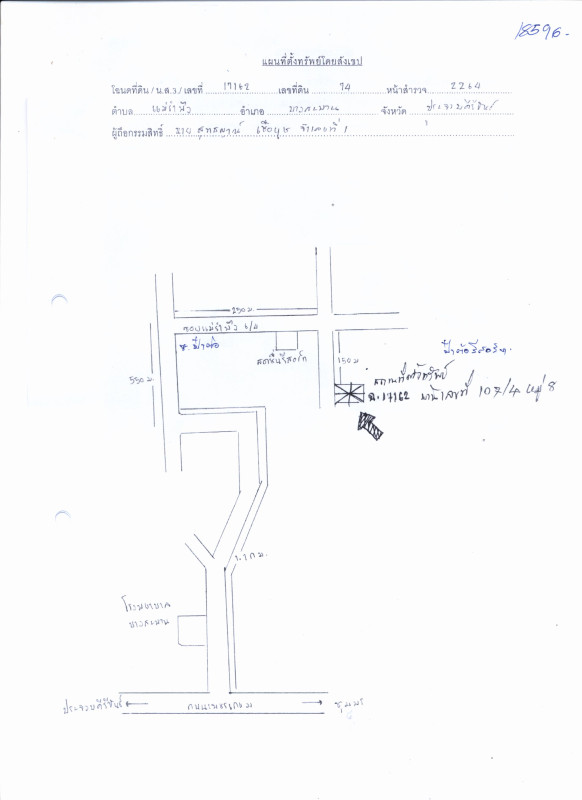 18596-
แผนที่ตั้งทรัพย์โดยสังเขป
โฉนดที่ดิน / น.ส.3 / เลขที่ 17162 เลขที่ดิน 74 หน้าสำรวจ 2264
ตำบล แม่รำพึง อำเภอ บางสะพาน จังหวัด ประจวบคีรีขันธ์
ผู้ถือกรรมสิทธิ์ นาย จำเลยที่ 1
250 ม.
ซอยแม่รำพึง 6/4
550 ม.
150 ม.
สถานที่ตั้งทรัพย์
ฉ.17162 บ้านเลขที่ 107/4 หมู่ 8
1.1 กม.
โรงพยาบาล
บางสะพาน
ประจวบคีรีขันธ์
ถนนเพชรเกษม
ชุมพร